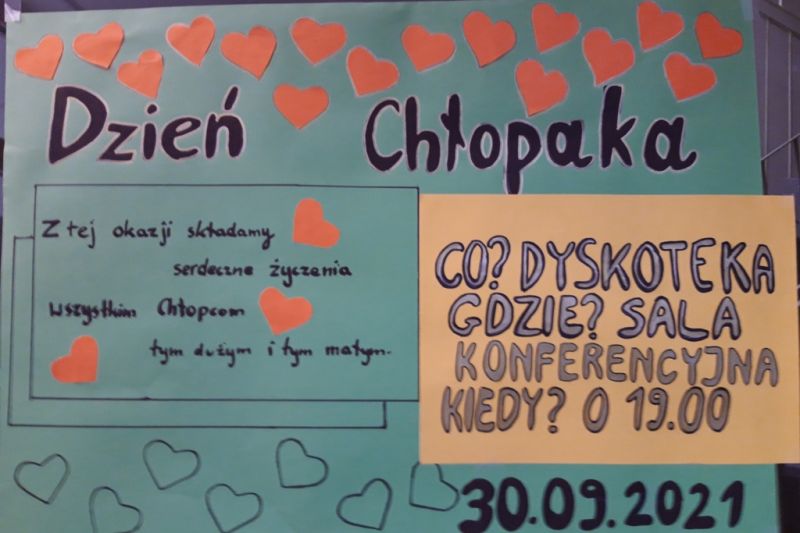 Dzień Chłopaka
Z tej okazji składamy
serdeczne życzenia
wszystkim Chłopcom
tym dużym i tym małym.
CO? DYSKOTEKA
GDZIE? SALA
KONFERENCYJNA
KIEDY? O 19.00
30.09.2021